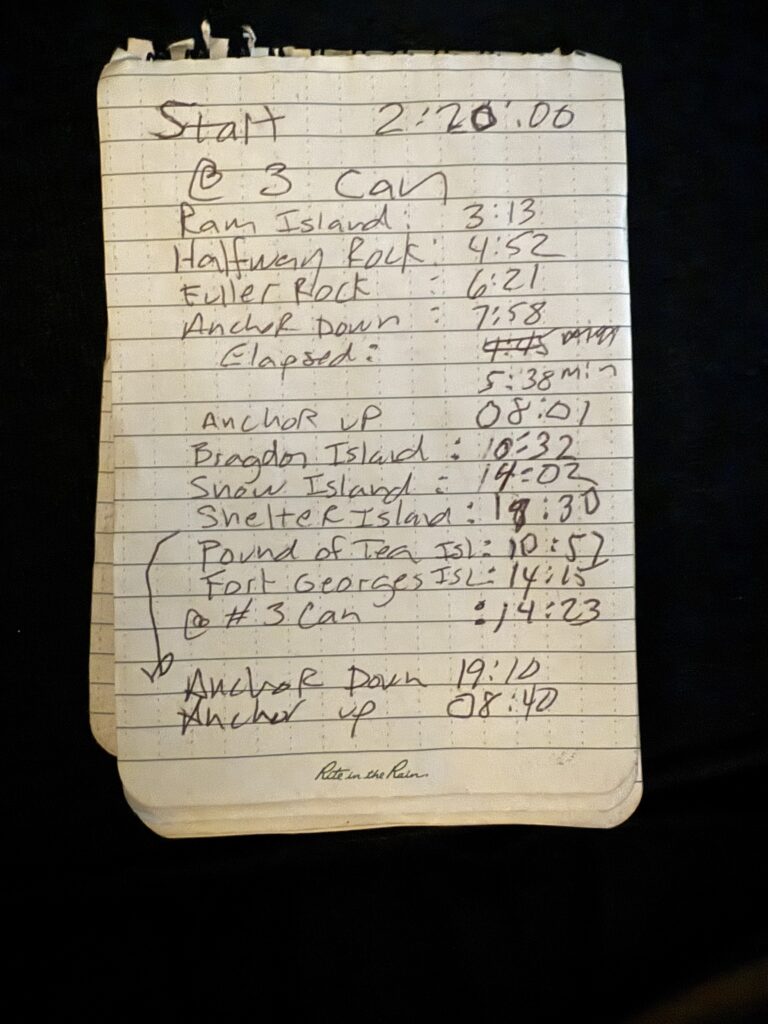 Start 2:20:00
@ 3 Can
Ram Island: 3:13
Halfway Rock: 4:52
Fuller Rock : 6:21
Anchor Down : 7:58
Elapsed: 4:45
5:38 min
Anchor up 08:01
Bragdon Island : 10:32
Snow Island : 14:02
Shelter Island : 18:30
Pound of Tea Isl: 10:57
Fort Georges Isl: 14:15
@ #3 Can :14:23
Anchor Down 19:10
Anchor up 08:40
Rite in the Rain